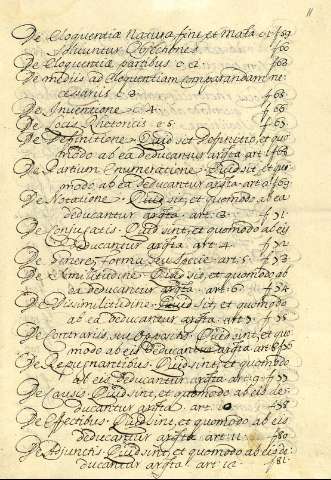 11
De Eloquentiæ Natura, fine, et Mat.a c.1 f 59
Solvuntur Objectiones. f 60
De Eloquentiæ partibus c. 2 f 62
De mediis ad Eloquentiam comparandam ne-
cessariis c. 3 f 66
De Inventione c. 4 f 66
De Locis Rhetoricis c. 5 f 65
De Definitione. Quid sit Definitio, et quo
modo ab ea deducantur argta art. 1 f 68
De Partium Enumeratione. Quid sit et
quomodo ab ea deducantur argta art. 2 f 69
De Notatione. Quid sit, et quomodo ab ea
deducantur argta art. 3 f 71
De Conjugatis. Quid sint, et quomodo ab eis
deducantur argta art. 4 f 72
De Genere, forma, seu Specie art. 5 f 73
De Similitudine. Quid sit, et quomodo ab
ea deducantur argta art. 6 f 74
De Dissimilitudine. Quid sit, et quomodo
ab ea deducantur argta art. 7 f 75
De Contrariis, seu Oppositis. Quid sint, et quo
modo ab eis deducantur argta art. 8 f 76
De Repugnantibus. Quid sint, et quomodo
ab eis deducantur argta art. 9 f 77
De Causis. Quid sint, et quomodo ab eis de-
ducantur argta art. f 78
De Effectibus. Quid sint, et quomodo ab eis
deducantur argta art. 11 f 80
De Adjunctis. Quid sint, et quomodo ab eis de
ducantur argta art. 12 f 81